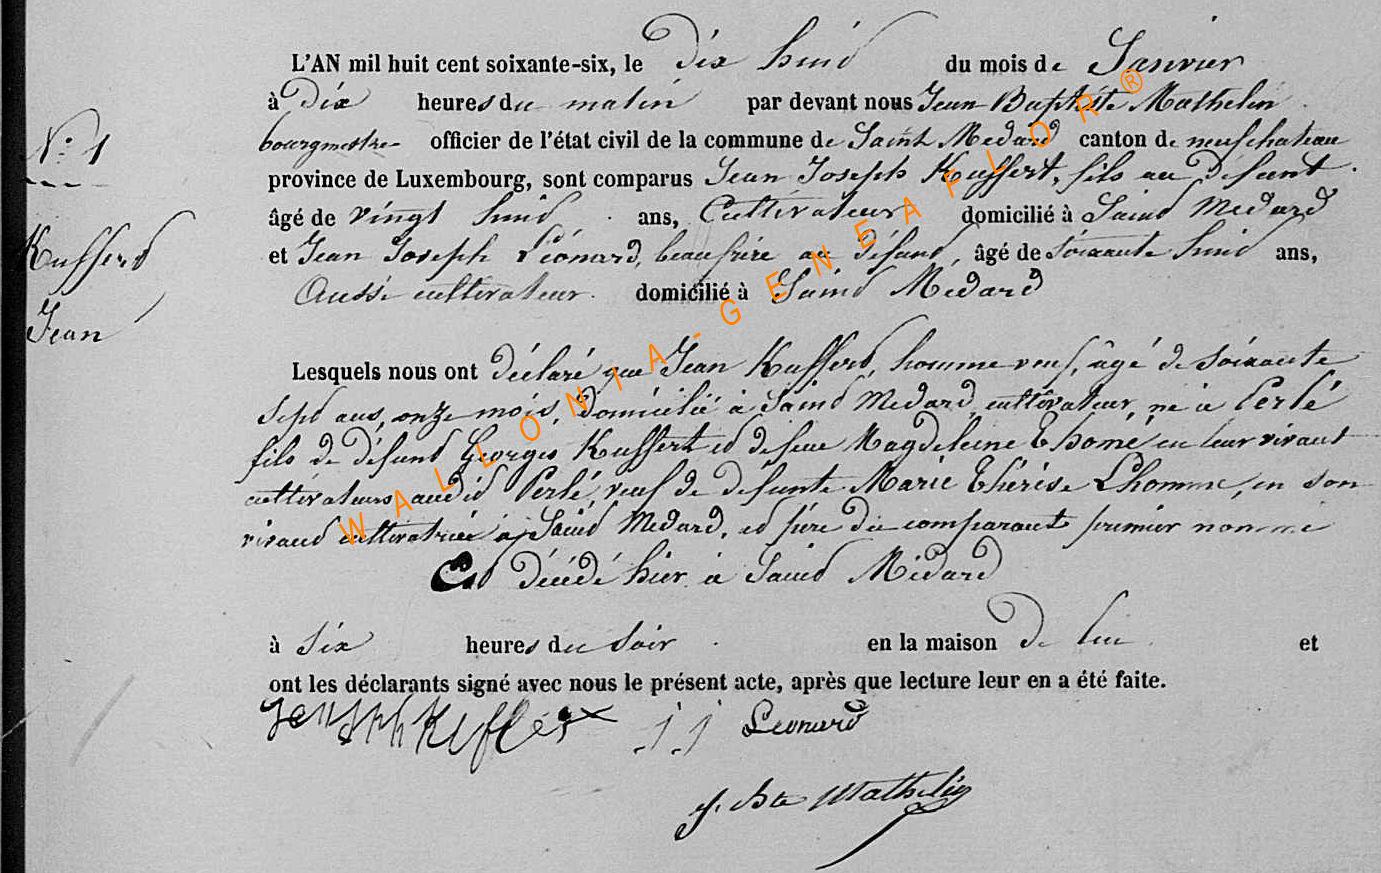 L'AN mil huit cent soixante-six, le dix huid du mois de Janvier
à dix heures du matin par devant nous Jean Baptiste Mathelin
N° 1
bourgmestre officier de l'état civil de la commune de Saint Medard canton de neufchateau
province de Luxembourg, sont comparus Jean Joseph Kuffert, fils au défunt
âgé de vingt huid ans, Cultivateur domicilié à Saind Medard
Kufferd
et Jean Joseph Léonard, beaufrère au défund, âgé de soixante huid ans,
Aussi cultivateur domicilié à Saind Medard
Jean
Lesquels nous ont déclaré que Jean Kufferd, homme veuf, âgé de soixante
sepd ans, onze mois, domicilié à Saind Medard, cultivateur, né à Perlé
fils de défund Georges Kuffert et de feue Magdeleine Thomé en leur vivant
cultivateurs audid Perlé, veuf de défunte Marie Thérèse Lhomme, en son
vivand cultivatrice à Saind Medard, ed père du comparant premier nommé
Esd décédé hier à Saind Médard
à six heures du soir en la maison de lui et
ont les déclarants signé avec nous le présent acte, après que lecture leur en a été faite.
j j Leonard
j. bte Mathelin
WALLONIA-GENEAFLOR®